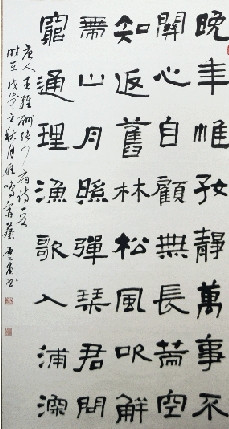 晚年惟好靜萬事不
關心自顧無長策空
知返舊林松風吹解
帶山月照彈琴君問
窮通理漁歌入浦深
唐人王維酬張少府詩一首